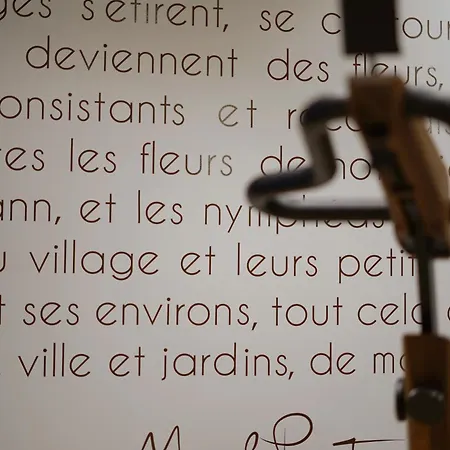 ges s'étirent, se c tour
deviennent des fleurs,
onsistants et re
res les fleurs de no
ann, et les nymphéas
u village et leurs petit
t ses environs, tout cela
ville et jardins, de ma